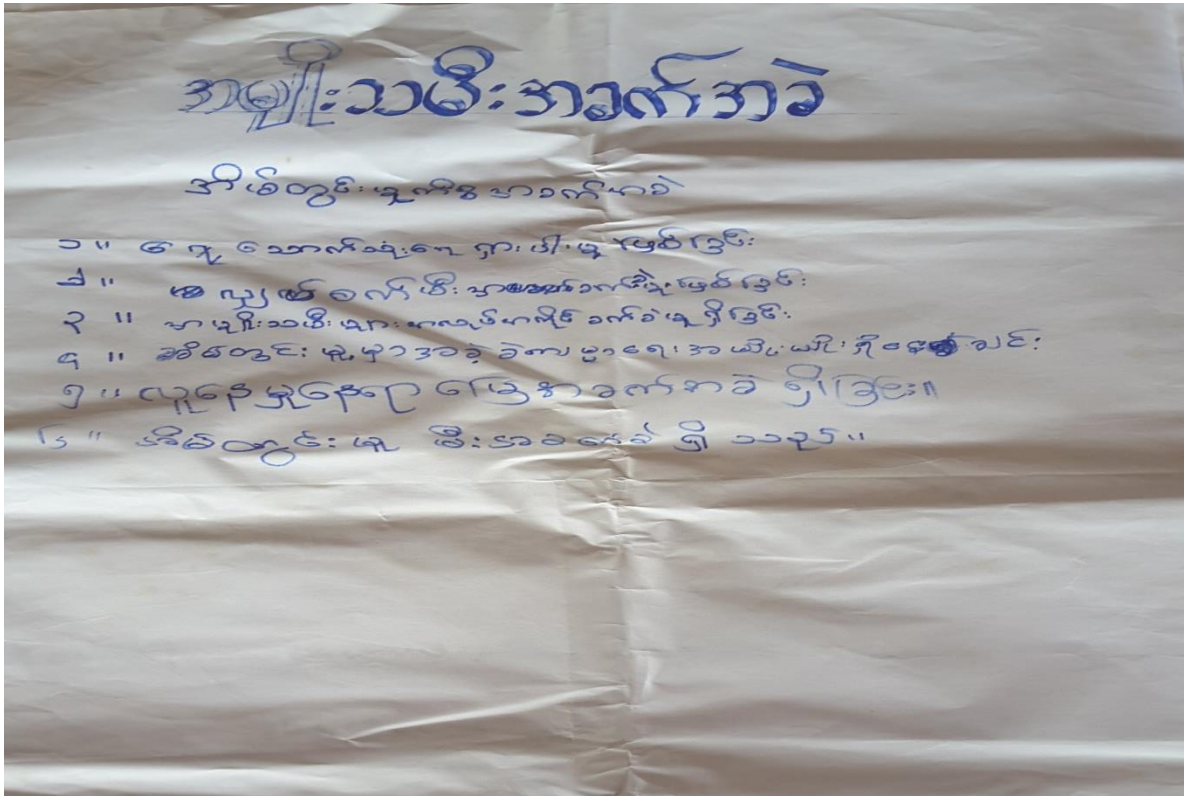 အမျိုးသမီးအခက်အခဲ
အိမ်တွင်းမှုကိစ္စအခက်အခဲ
၁။ ရေ သောက်သုံးရေ ရှားပါးမှု ဖြစ်ခြင်း
၂။ လျှပ်စက်မီး အခက်ခဲဖြစ်ခြင်း
၃။ အမျိုးသမီးများ အလုပ်အကိုင် ခက်ခဲမှု ရှိခြင်း
၄။ အိမ်တွင်းမှု ကျန်းမာရေး ချို့ ရှိ ခြင်း
၅။ လူနေမှုနေရာ မြေအခက်အခဲ ရှိခြင်း။
၆။ အိမ်တွင်းမှု မီးအခက်ခဲ ရှိ သည်။